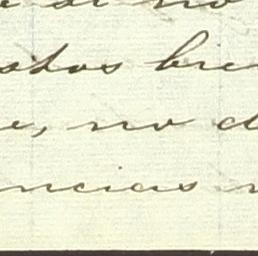 si no
stos bie
e, no d
ncias